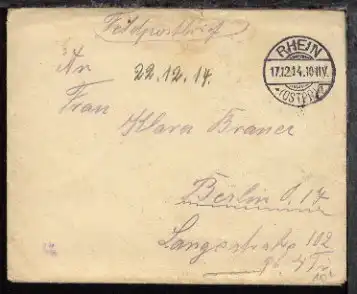 Feldpostbrief
RHEIN
17.12.14.10-11V.
(OSTPR.)
An
22.12.14.
Frau
Klara Brauer
Berlin O. 17
Langestraße 102